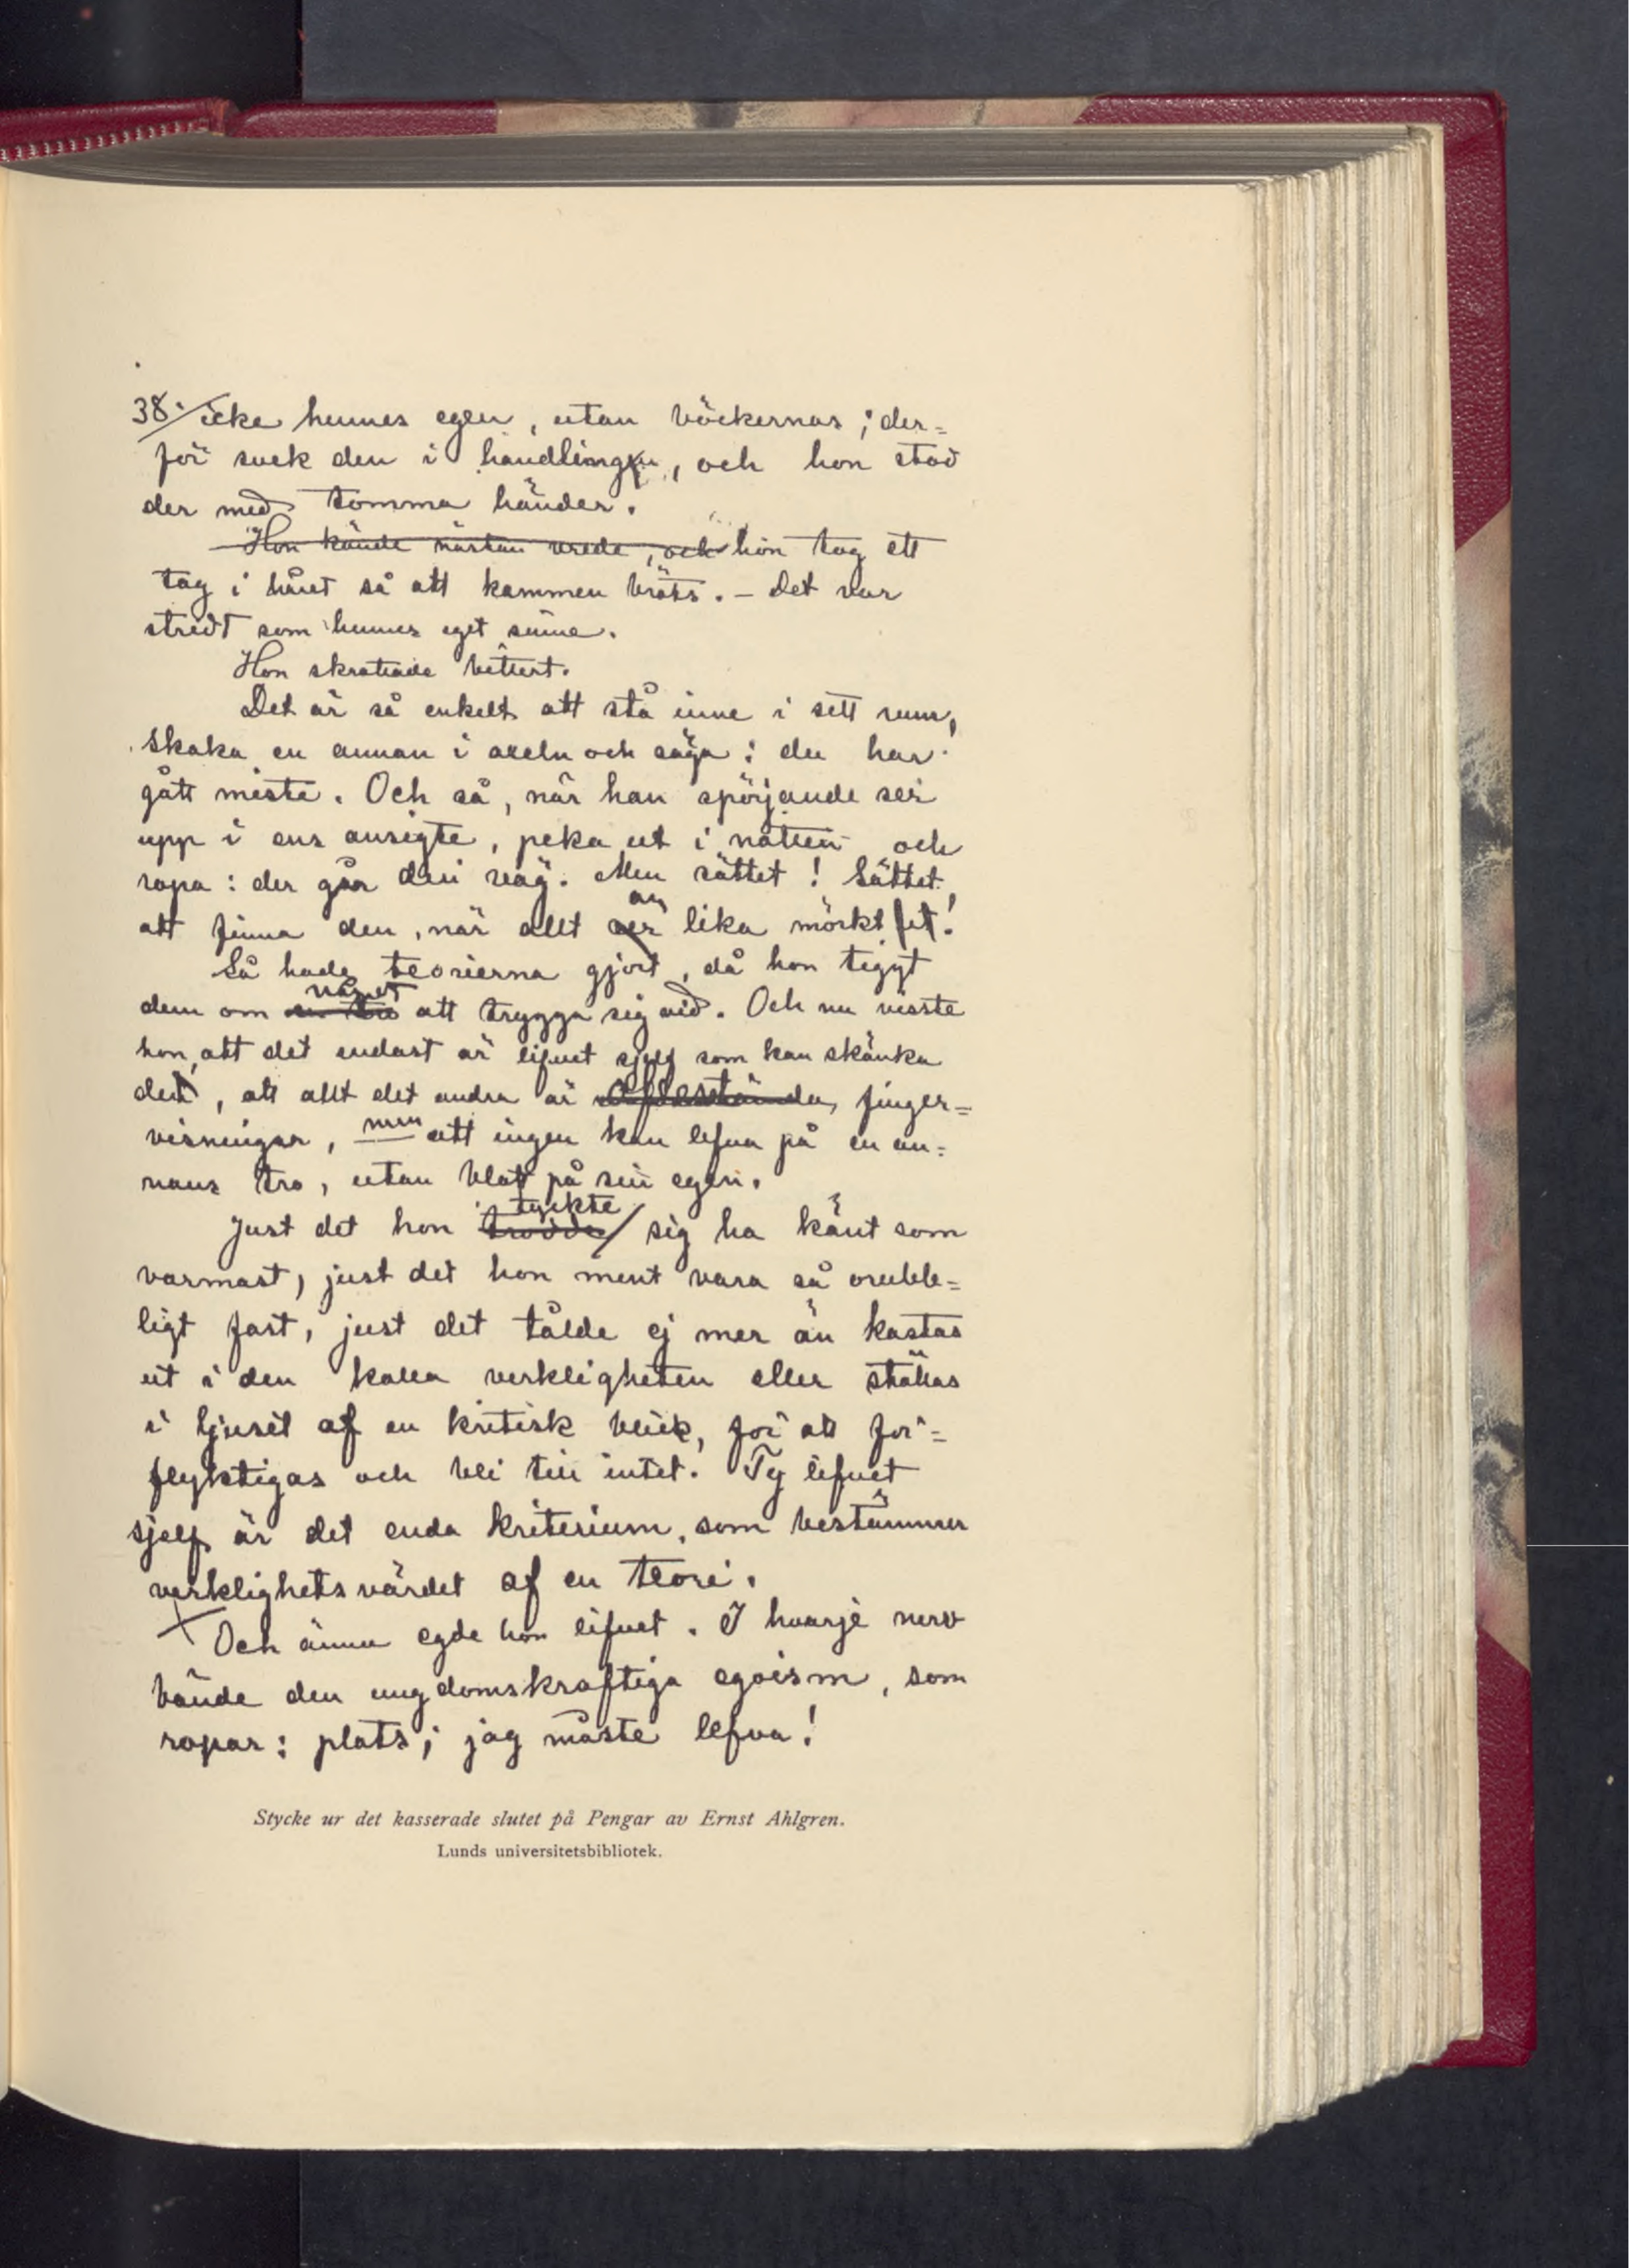 38. icke hennes egen, utan böckernas; der=
för svek den i handlingen, och hon stod
der med tomma händer.
Hon kände nästan vrede, och hon tog ett
tag i håret så att kammen bröts. – Det var
stridt som hennes eget sinne.
Hon skrattade bittert.
Det är så enkelt att stå inne i sitt rum,
skaka en annan i axeln och säga: du har
gått miste. Och så, när han spörjande ser
upp i ens ansigte, peka ut i natten och
ropa: der går din väg. Men sättet! Sättet
att finna den, när allt är lika mörkt!
Så hade teorierna gjort, då hon tiggt
något
dem om en tro att trygga sig vid. Och nu visste
hon, att det endast är lifvet sjelf som kan skänka
det, att allt det andra är finger=
visningar, men att ingen kan lefva på en an=
nans tro, utan blott på sin egen.
tyckte
Just det hon trodde sig ha känt som
varmast, just det hon ment vara så orubb=
ligt fast, just det tålde ej mer än kastas
ut i den kalla verkligheten eller ställas
i ljuset af en kritisk blick, för att för=
flyktigas och bli till intet. Ty lifvet
sjelf är det enda kriterium, som bestämmer
verklighetsvärdet af en teori.
Och ännu egde hon lifvet. I hvarje nerv
bände den ungdomskraftiga egoism, som
ropar: plats; jag måste lefva!
Stycke ur det kasserade slutet på Pengar av Ernst Ahlgren.
Lunds universitetsbibliotek.